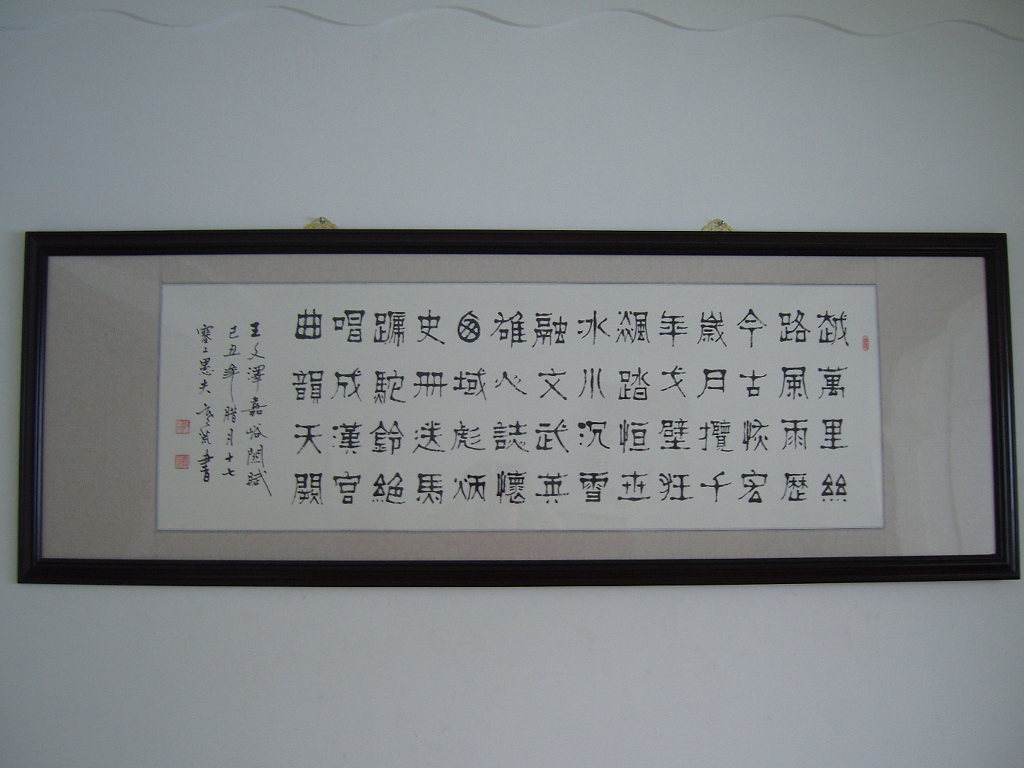 越萬里絲
路風雨歷
今古恢宏
歲月攬千
年戈壁狂
飆踏恒世
冰川沉雪
融文武英
雄心誌懷
域彪炳
史冊迭馬
蹏駝鈴絶
唱成漢宮
曲韻天闕
王文澤嘉峪關賦
己丑年腊月十七
塞上愚夫 書